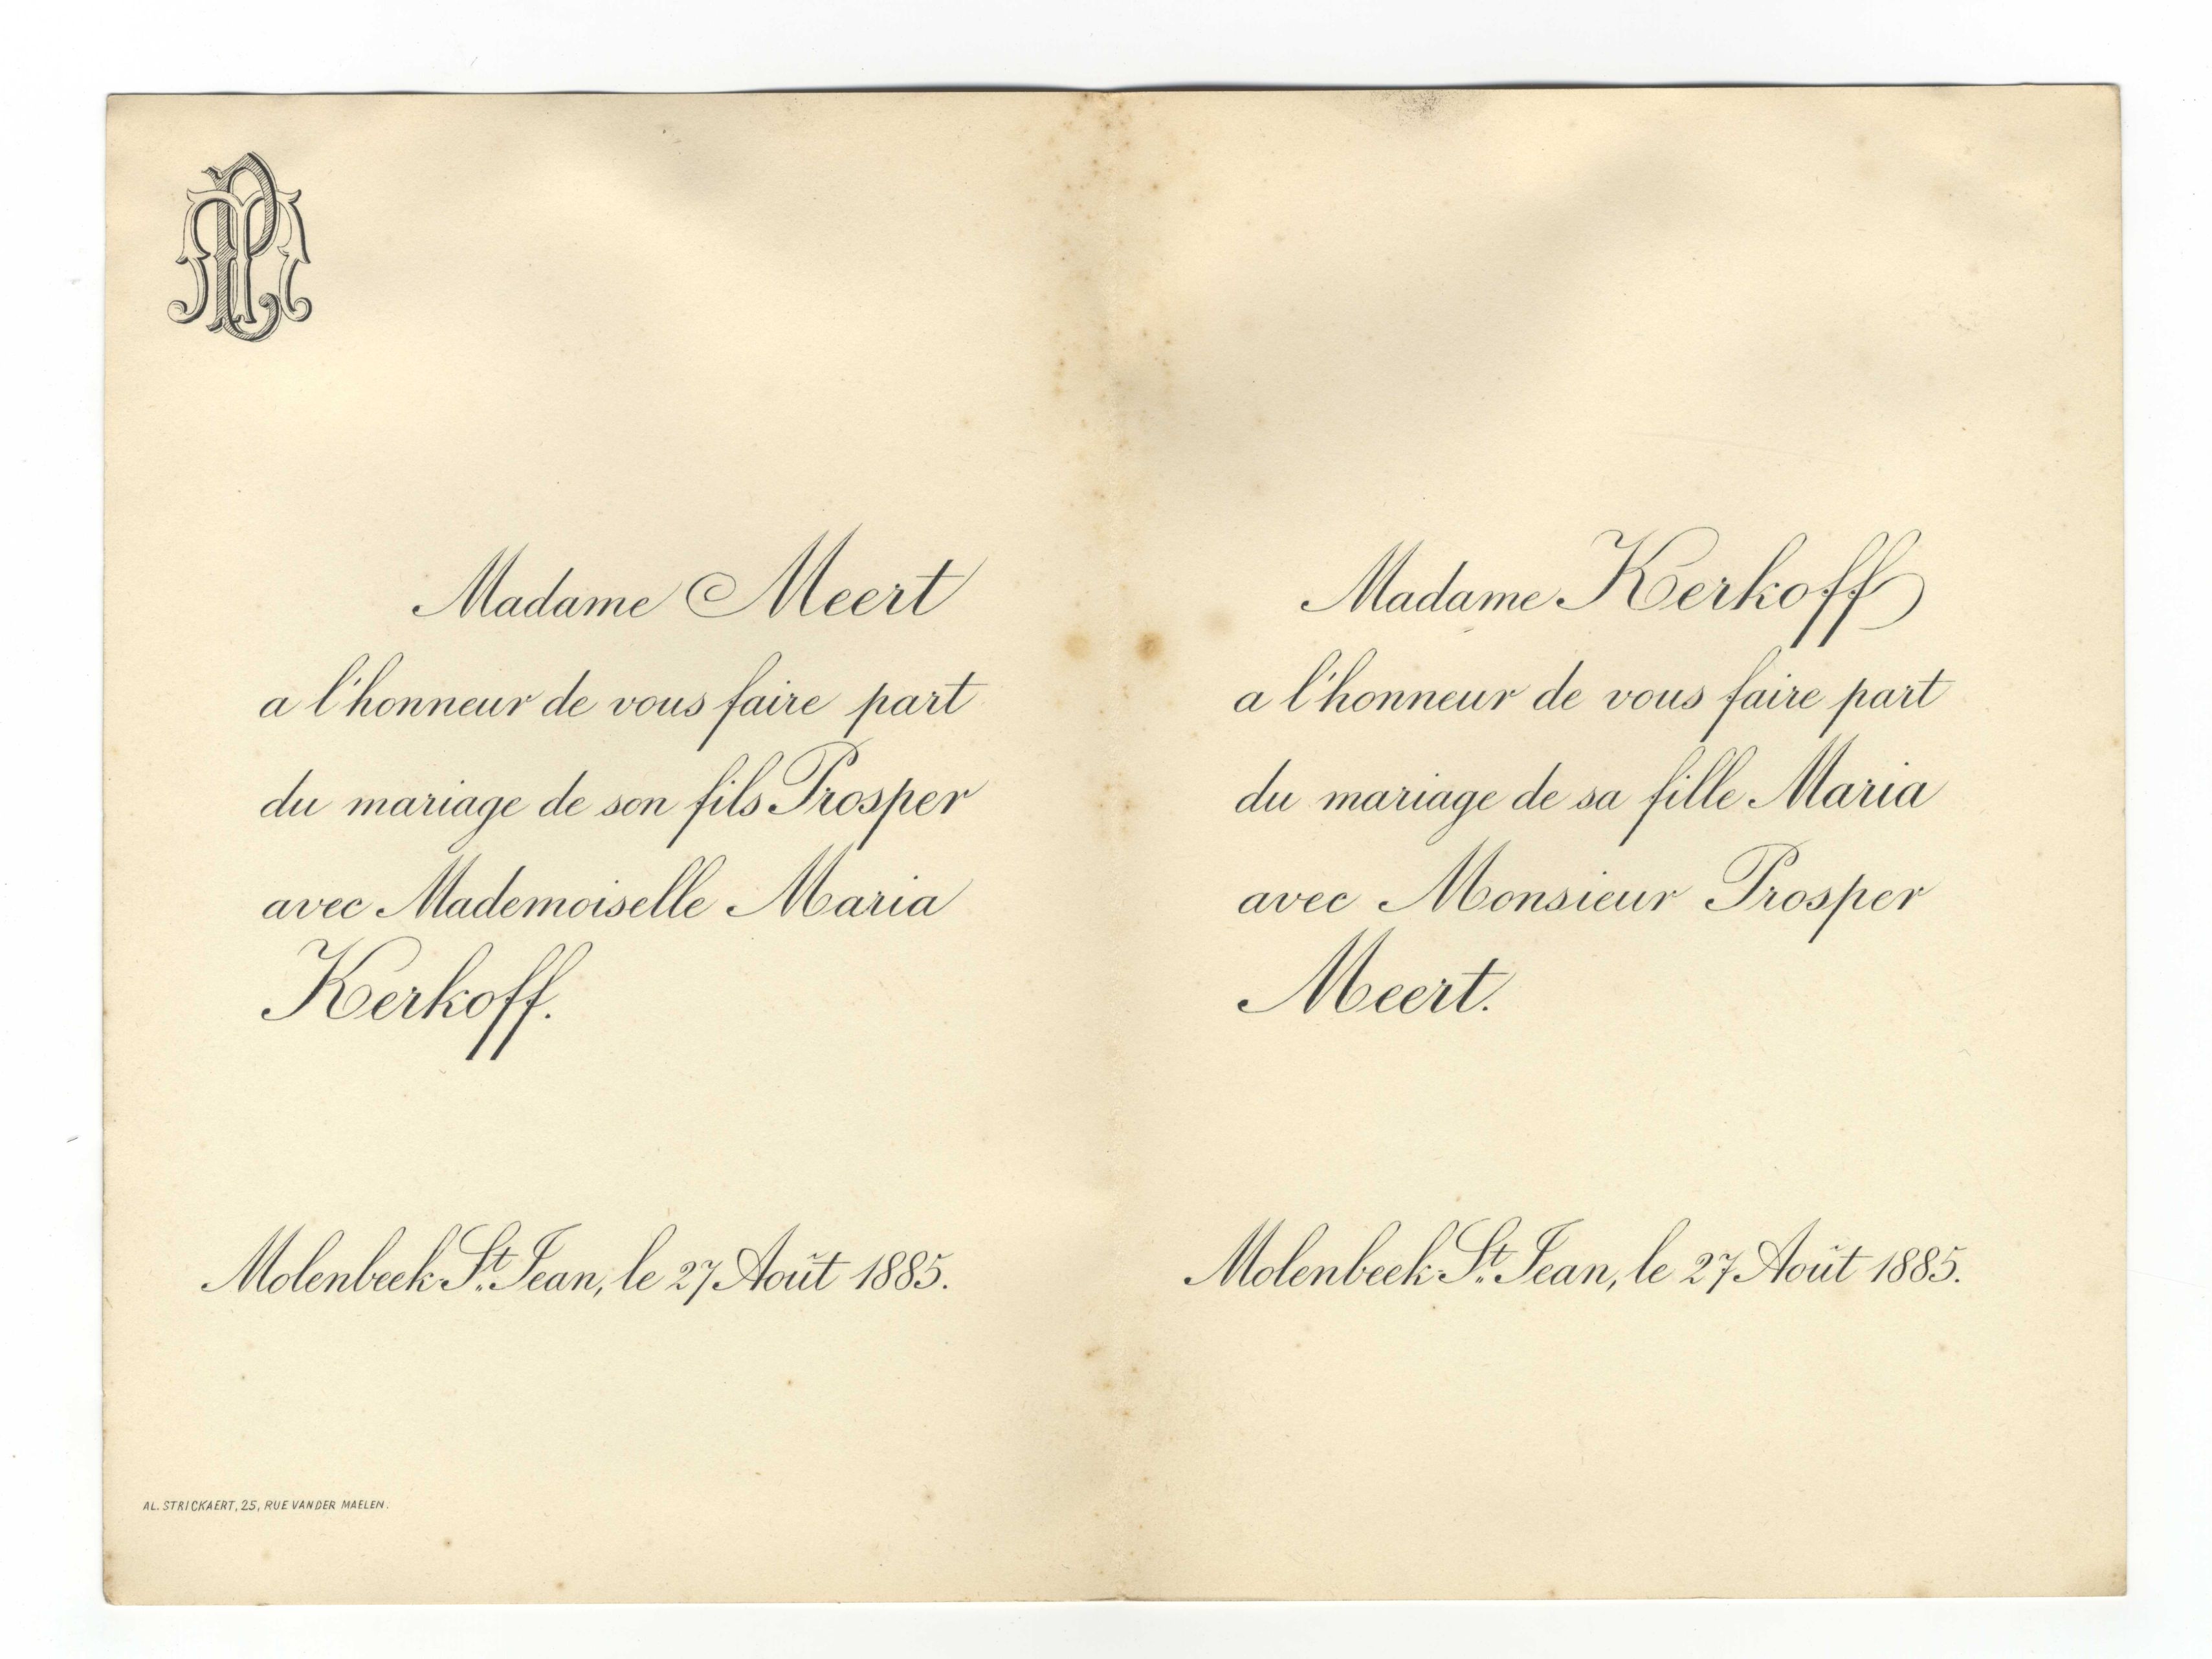 PM
Madame Meert
a l'honneur de vous faire part
du mariage de son fils Prosper
avec Mademoiselle Maria
Kerkoff.
Molenbeek-St. Jean, le 27 Août 1885.
AL. STRICKAERT, 25, RUE VANDER MAELEN.
Madame Kerkoff
a l'honneur de vous faire part
du mariage de sa fille Maria
avec Monsieur Prosper
Meert.
Molenbeek-St. Jean, le 27 Août 1885.